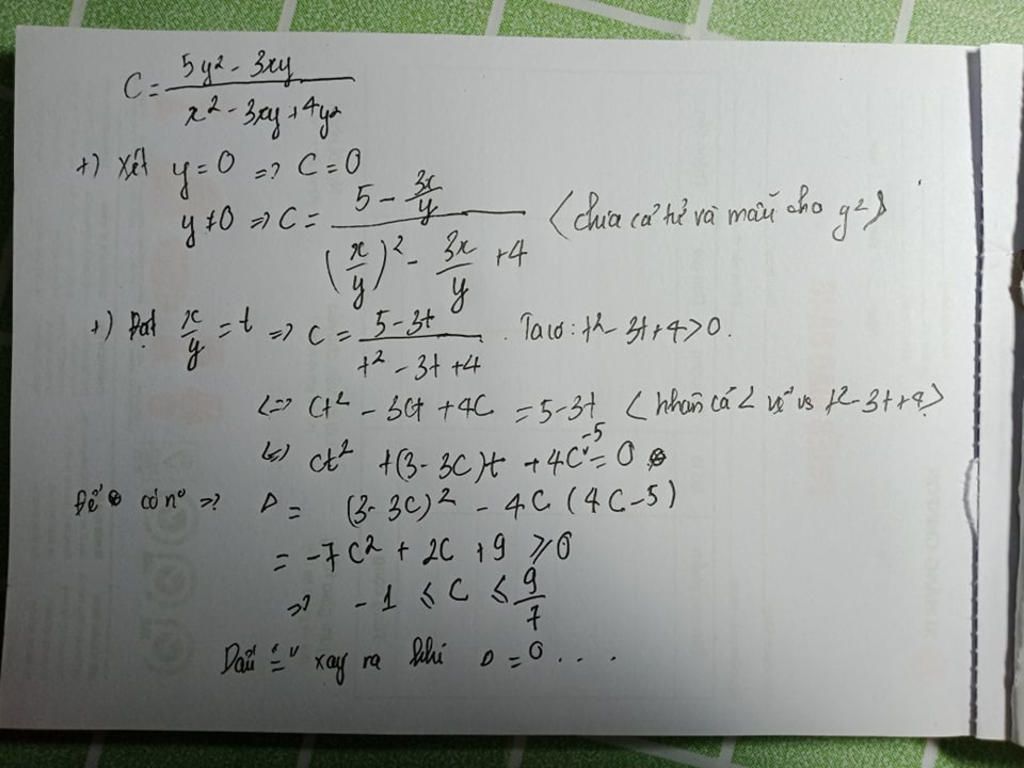 C = \frac{5y² - 3xy}{x² - 3xy + 4y²}
+) Xét y = 0 => C = 0
y ≠ 0 => C = \frac{5 - \frac{3x}{y}}{(\frac{x}{y})² - \frac{3x}{y} + 4} <chia cả tử và mẫu cho y²>
+) Đặt \frac{x}{y} = t => C = \frac{5 - 3t}{t² - 3t + 4} . Ta có: t² - 3t + 4 > 0.
<=> Ct² - 3Ct + 4C = 5 - 3t <nhân cả 2 vế vs t² - 3t + 4>
<=> Ct² + (3 - 3C)t + 4C - 5 = 0 ⊗
Để ⊗ có n⁰ => Δ = (3 - 3C)² - 4C (4C - 5)
= -7C² + 2C + 9 ⩾ 0
=> - 1 ≤ C ≤ \frac{9}{7}
Dấu "=" xay ra khi Δ = 0 ....